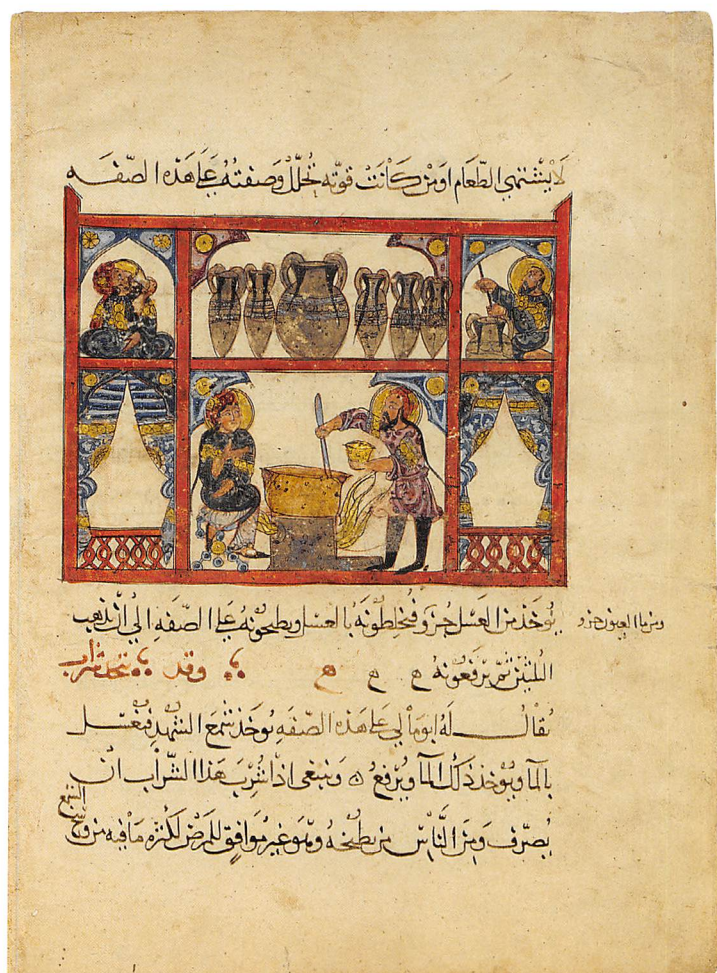 لَا يَشتهي الطّعام او من كَانَتْ قوّته تُحلّل وَصفتُهُ عَلَى هَذه الصّفَه
يُوخَذ من العَسَل جُزو فيُخلطونَه بالعسل ويطبخونهُ عَلى الصّفَه الى ان يذهب
ومن ما العيون جزو
الثلثين ثمّ يرفَعُونهُ ه ه ه وقد يتخذ شراب
يُقالُ لَهُ ابومَالى عَلى هَذه الصّفَه يُوخَذ شمعَ الشهدِ فيُغسَل
بالمآ ويُوخذ ذلكَ المآ ويُرفعُ ه وَينبغى اذا شُربَ هَذا الشّرابُ انْ
يُصرّف وَمِنَ النّاسِ من يطبخهُ وهُو غير مُوَافِقٍ للمرضَى لكثرهِ مَا فيهِ من وسخ
الشمع